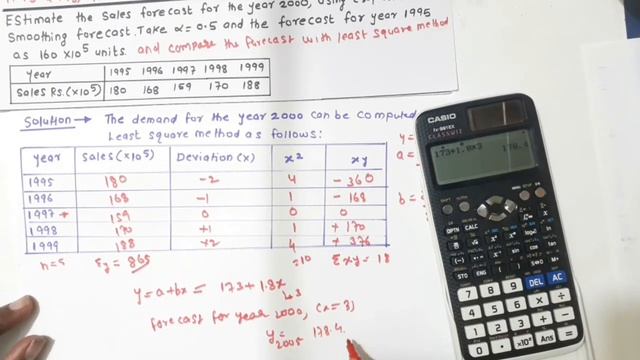 Estimate the sales forecast for the year 2000, using
Smoothing forecast. Take α = 0.5 and the forecast for year 1995
as 160 x10⁵ units. and compare the forecast with least square method
Year 1995 1996 1997 1998 1999
Sales Rs.(x10⁵) 180 168 159 170 188
Solution → The demand for the year 2000 can be computed
Least square method as follows:
year Sales (x10⁵) Deviation (x) x² xy
1995 180 -2 4 - 360
1996 168 -1 1 - 168
1997 * 159 0 0 0
1998 170 +1 1 + 170
1999 188 +2 4 + 376
n=5 Σy = 865 =10 Σxy = 18
y = a+bx = 173+1.8x
3
Forecast for year 2000, (x = 3)
y2005 = 178.4
y =
a =
b =
CASIO
fx-991EX
CLASSWIZ
173+1.8x3
178.4
OPTN CALC
STO ENG ( ) S⇔D M+
7 8 9 DEL AC
4 5 6 × ÷
1 2 3 + −
0 . ×10ˣ Ans =